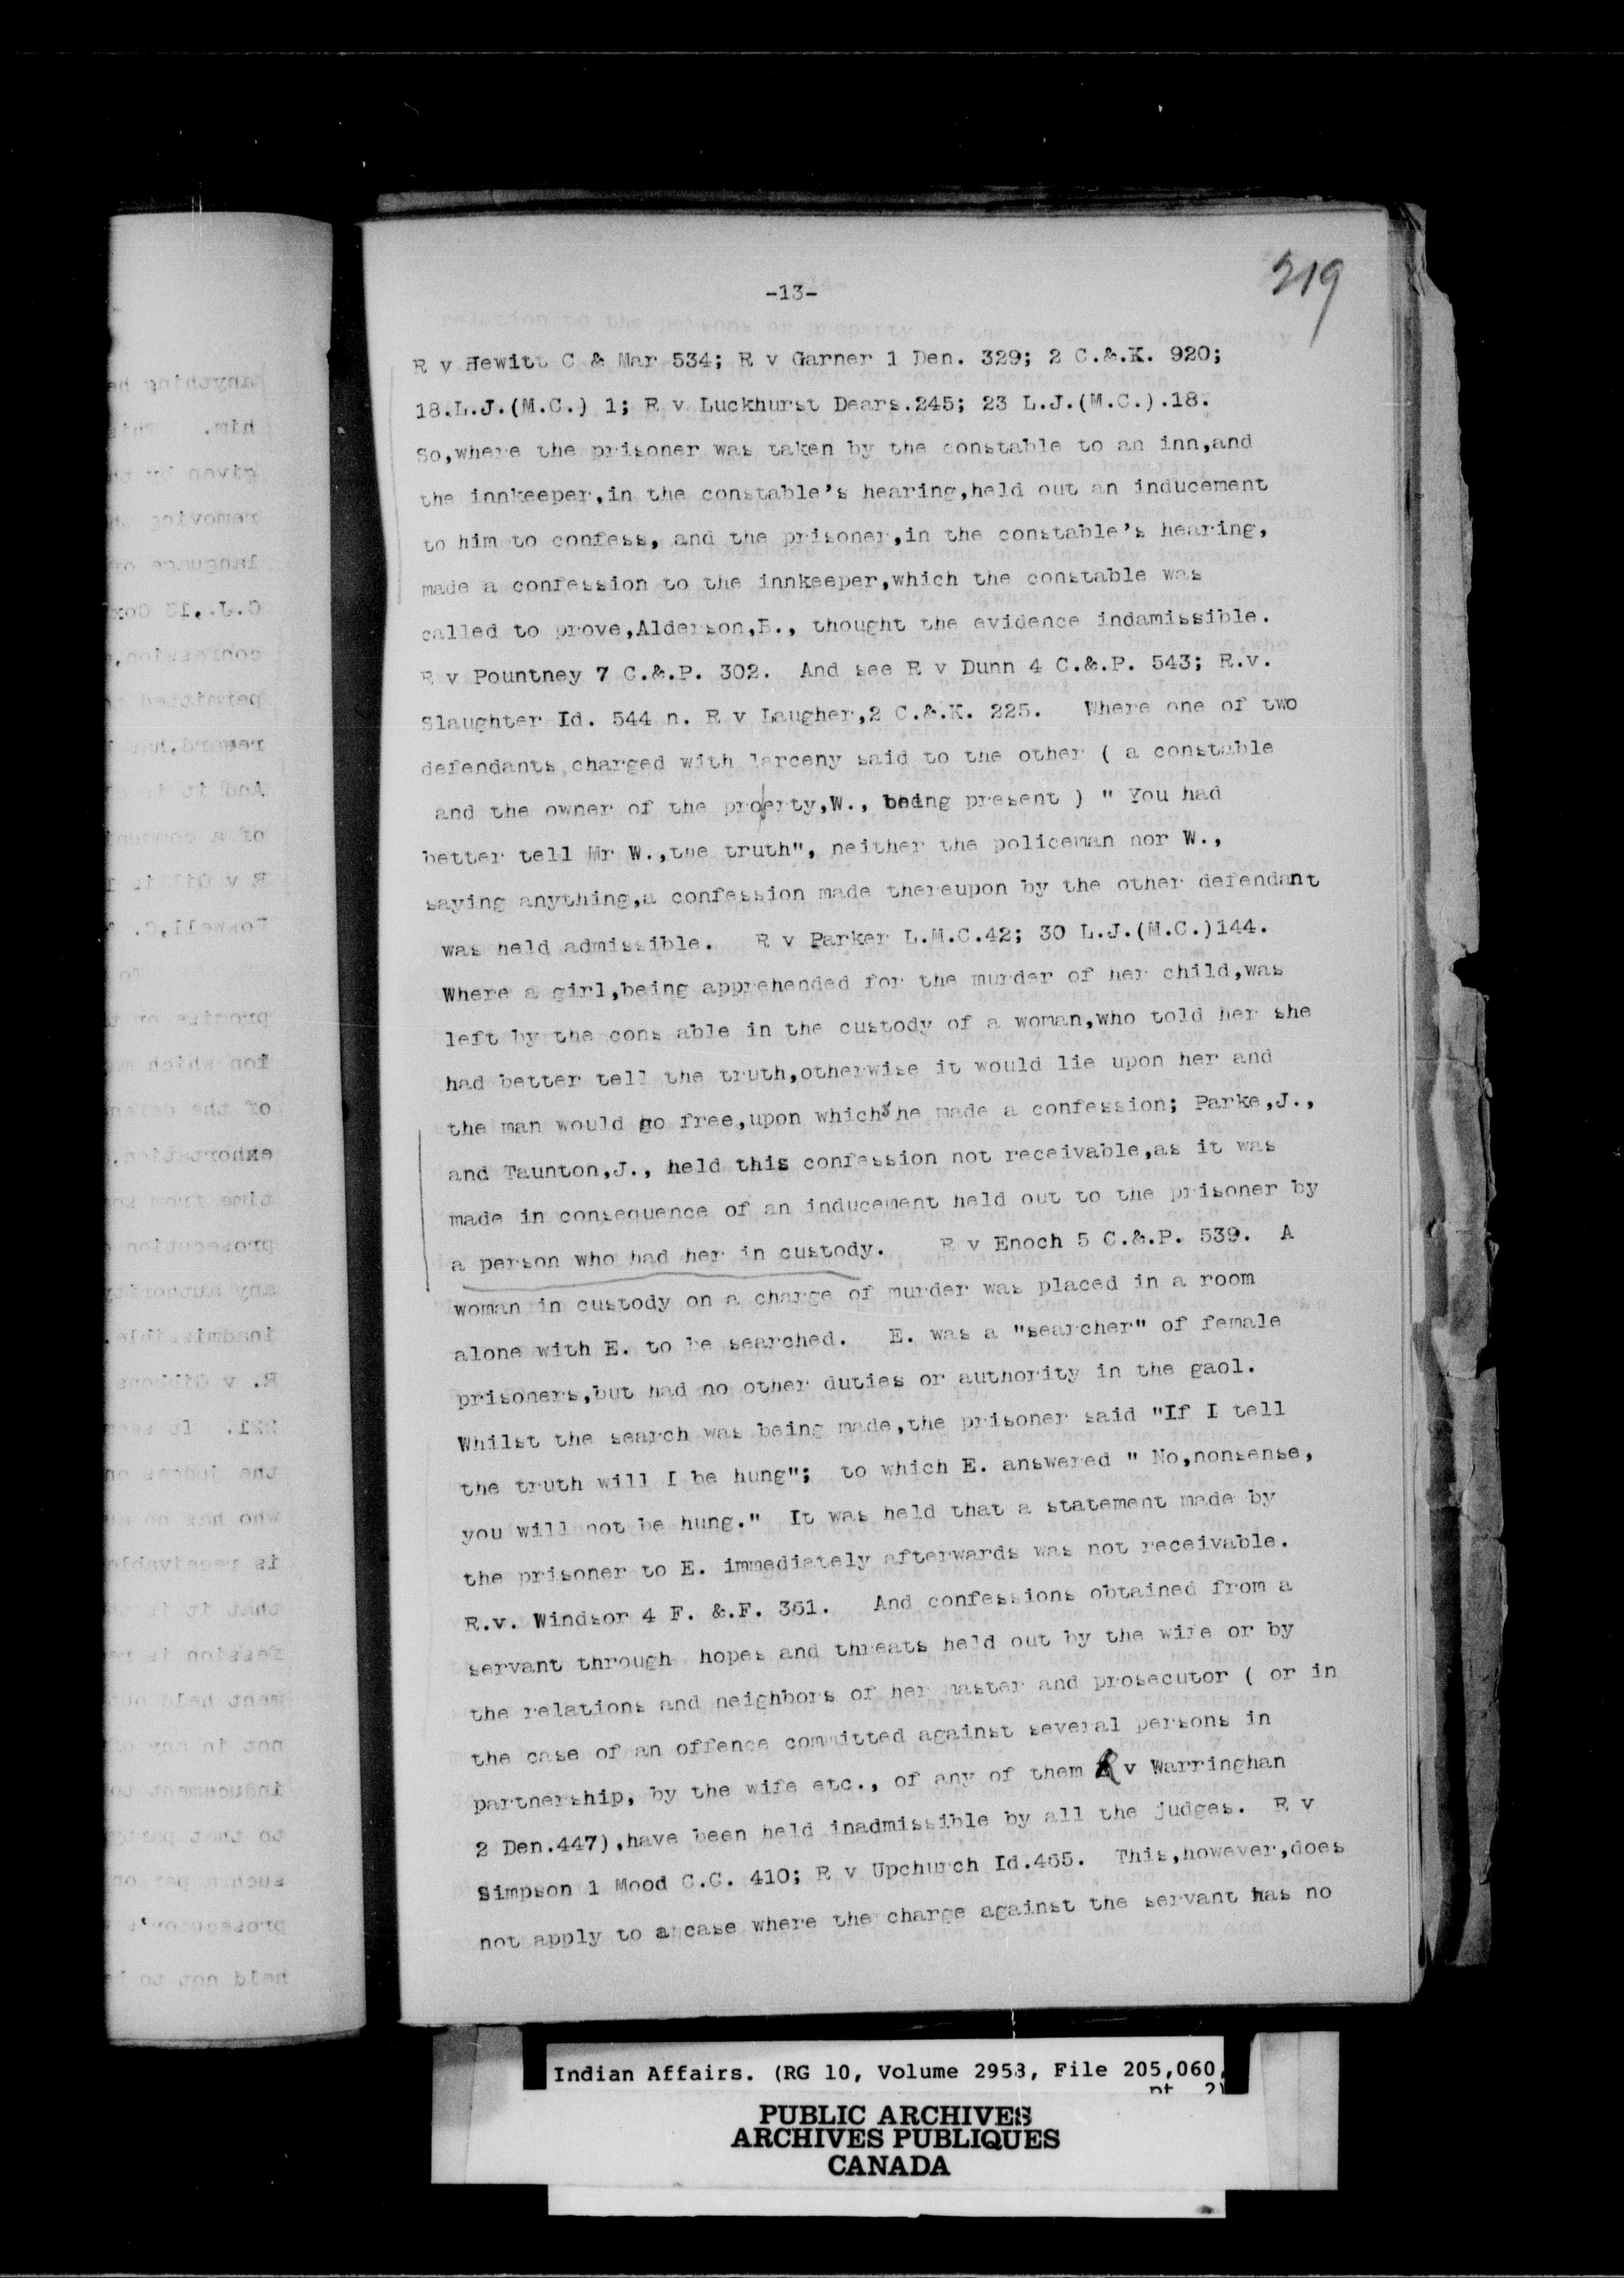 219
-13-
R v Hewitt C & Mar 534; R v Garner 1 Den. 329; 2 C.&.K. 920;
18.L.J.(M.C.) 1; R v Luckhurst Dears.245; 23 L.J.(M.C.).18.
So,where the prisoner was taken by the constable to an inn,and
the innkeeper,in the constable's hearing,held out an inducement
to him to confess, and the prisoner,in the constable's hearing,
made a confession to the innkeeper,which the constable was
called to prove,Alderson,B., thought the evidence indamissible.
R v Pountney 7 C.&.P. 302. And see R v Dunn 4 C.&.P. 543; R.v.
Slaughter Id. 544 n. R v Laugher,2 C.&.K. 225. Where one of two
defendants,charged with larceny said to the other ( a constable
and the owner of the proerty,W., being present ) " You had
better tell Mr W.,the truth", neither the policeman nor W.,
saying anything,a confession made thereupon by the other defendant
was held admissible. R v Parker L.M.C.42; 30 L.J.(M.C.)144.
Where a girl,being apprehended for the murder of her child,was
left by the cons able in the custody of a woman,who told her she
had better tell the truth,otherwise it would lie upon her and
the man would go free,upon which she made a confession; Parke,J.,
and Taunton,J., held this confession not receivable,as it was
made in consequence of an inducement held out to the prisoner by
a person who had her in custody. R v Enoch 5 C.&.P. 539. A
woman in custody on a charge of murder was placed in a room
alone with E. to be searched. E. was a "searcher" of female
prisoners,but had no other duties or authority in the gaol.
Whilst the search was being made,the prisoner said "If I tell
the truth will I be hung"; to which E. answered " No,nonsense,
you will not be hung." It was held that a statement made by
the prisoner to E. immediately afterwards was not receivable.
R.v. Windsor 4 F. &.F. 361. And confessions obtained from a
servant through hopes and threats held out by the wife or by
the relations and neighbors of her master and prosecutor ( or in
the case of an offence committed against several persons in
partnership, by the wife etc., of any of them R v Warringhan
2 Den.447),have been held inadmissible by all the judges. R v
Simpson 1 Mood C.C. 410; R v Upchurch Id.465. This,however,does
not apply to a case where the charge against the servant has no
Indian Affairs. (RG 10, Volume 2958, File 205,060,
pt. 2)
PUBLIC ARCHIVES
ARCHIVES PUBLIQUES
CANADA